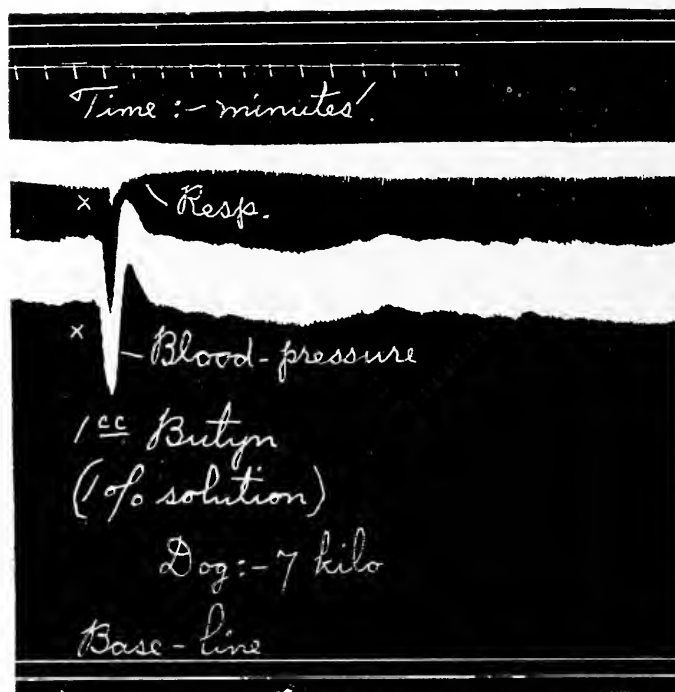 Time:- minutes'.
x
Resp.
x
Blood-pressure
1cc Butyn
(1% solution)
Dog:- 7 kilo
Base-line